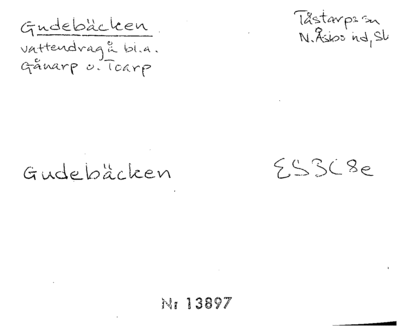 Gudebäcken
vattendrag å bl.a.
Gånarp o. Tcarp
Tåstarps sn
N. Åsbo hd, Sk
Gudebäcken
ES3C8e
Nr 13897